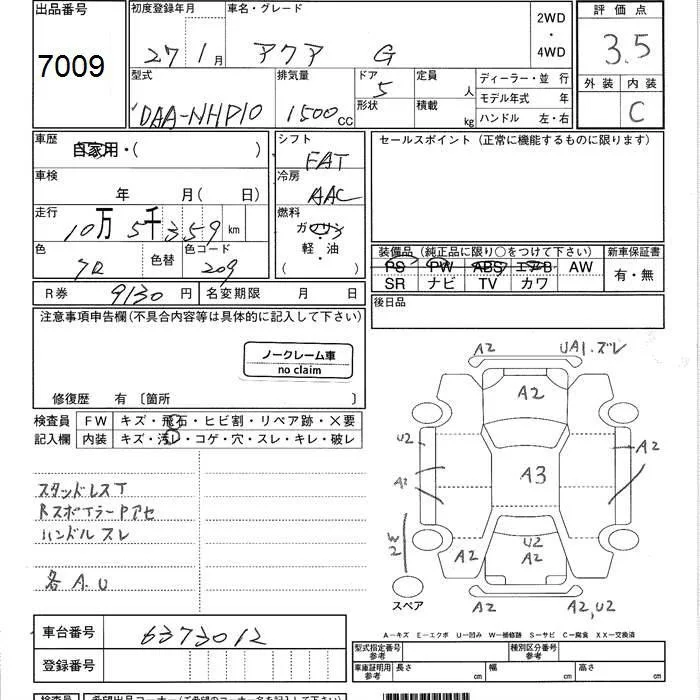 出品番号
7009
初度登録年月
27 1月
車名・グレード
アクア G
2WD
・
4WD
評価点
3.5
外装 内装
C
型式
DAA-NHP10
排気量
1500cc
ドア
5
形状
定員
人
積載
kg
ディーラー・並行
モデル年式 年
ハンドル 左・右
車歴
自家用・( )
車検
年 月(日)
走行
10万5千359km
色
ク口
色替
色コード
209
シフト
FAT
冷房
AAC
燃料
ガソリン
軽・油
( )
セールスポイント (正常に機能するものに限ります)
装備品 (純正品に限り○をつけて下さい)
PS PW ABS エアB AW
SR ナビ TV カワ
新車保証書
有・無
R券 9130円
名変期限 月 日
後日品
注意事項申告欄(不具合内容等は具体的に記入して下さい)
ノークレーム車
no claim
修復歴 有〔箇所 〕
検査員
記入欄
FW キズ・飛石・ヒビ割・リペア跡・×要
内装 キズ・汚レ・コゲ・穴・スレ・キレ・破レ
スタッドレスT
RスポイラーPアセ
ハンドルスレ
各A.U
A2 UA1.ズレ
A2
U2
A2
A2
A3
W2
A2
U2
A2
A2
A2
A2,U2
スペア
車台番号
6373012
登録番号
A−キズ E−エクボ U−凹み W−補修跡 S−サビ C−腐食 XX−交換済
型式指定番号
参考
種別区分番号
参考
車庫証明用
参考
長さ cm
幅 cm
高さ cm
検査員
希望出品コーナー(ご希望のコーナー名を記入